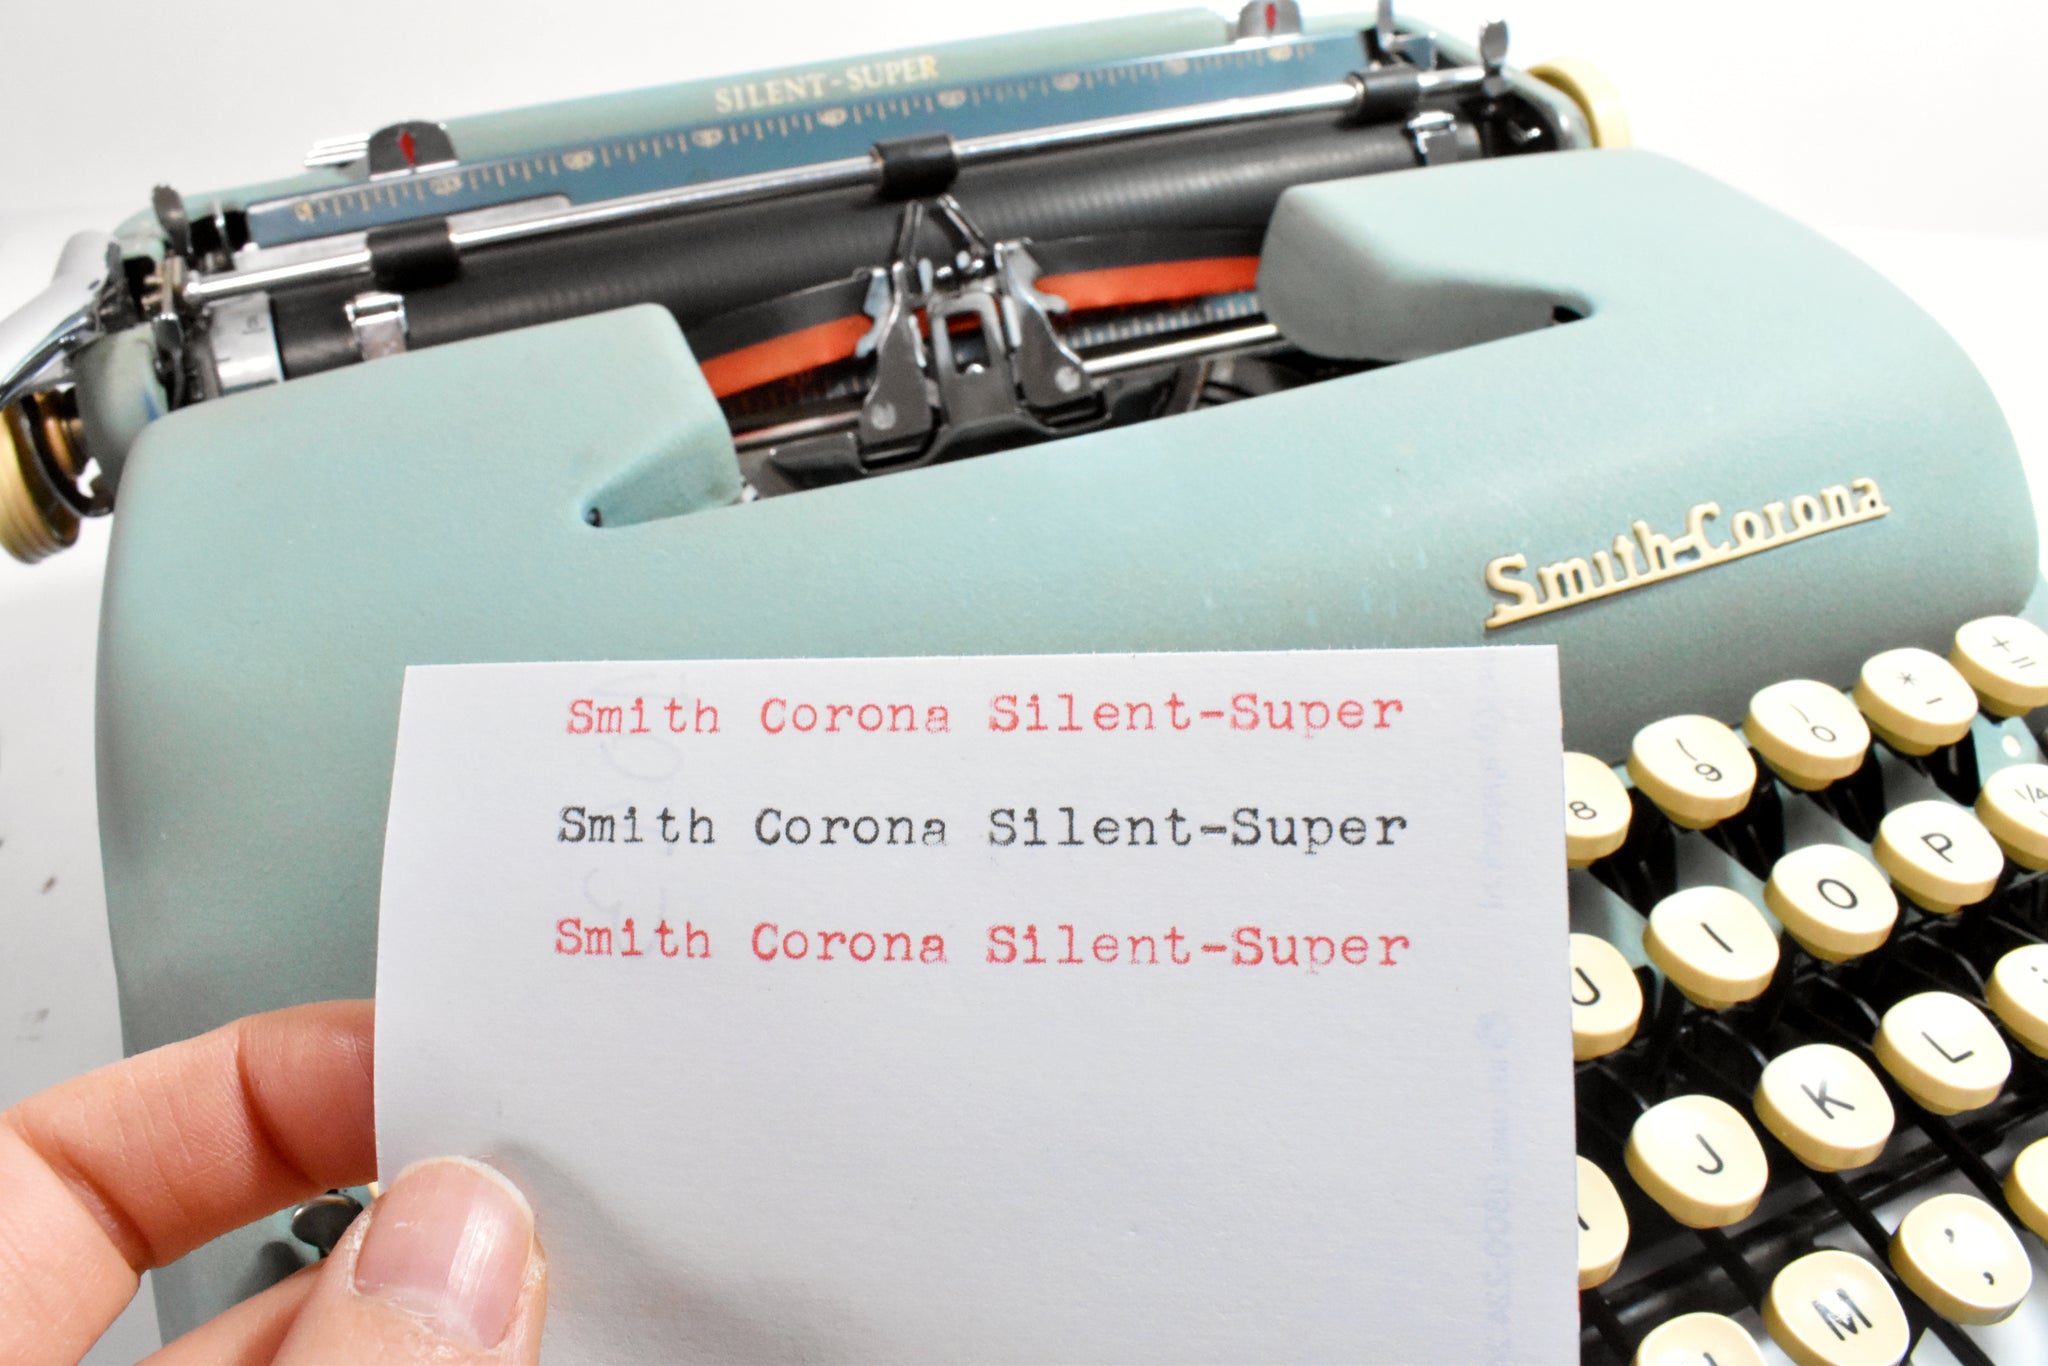 SILENT-SUPER
Smith-Corona
Smith Corona Silent-Super
Smith Corona Silent-Super
Smith Corona Silent-Super
+ =
* -
) 0
( 9
8
P
O
I
U
L
K
J
M
, ,